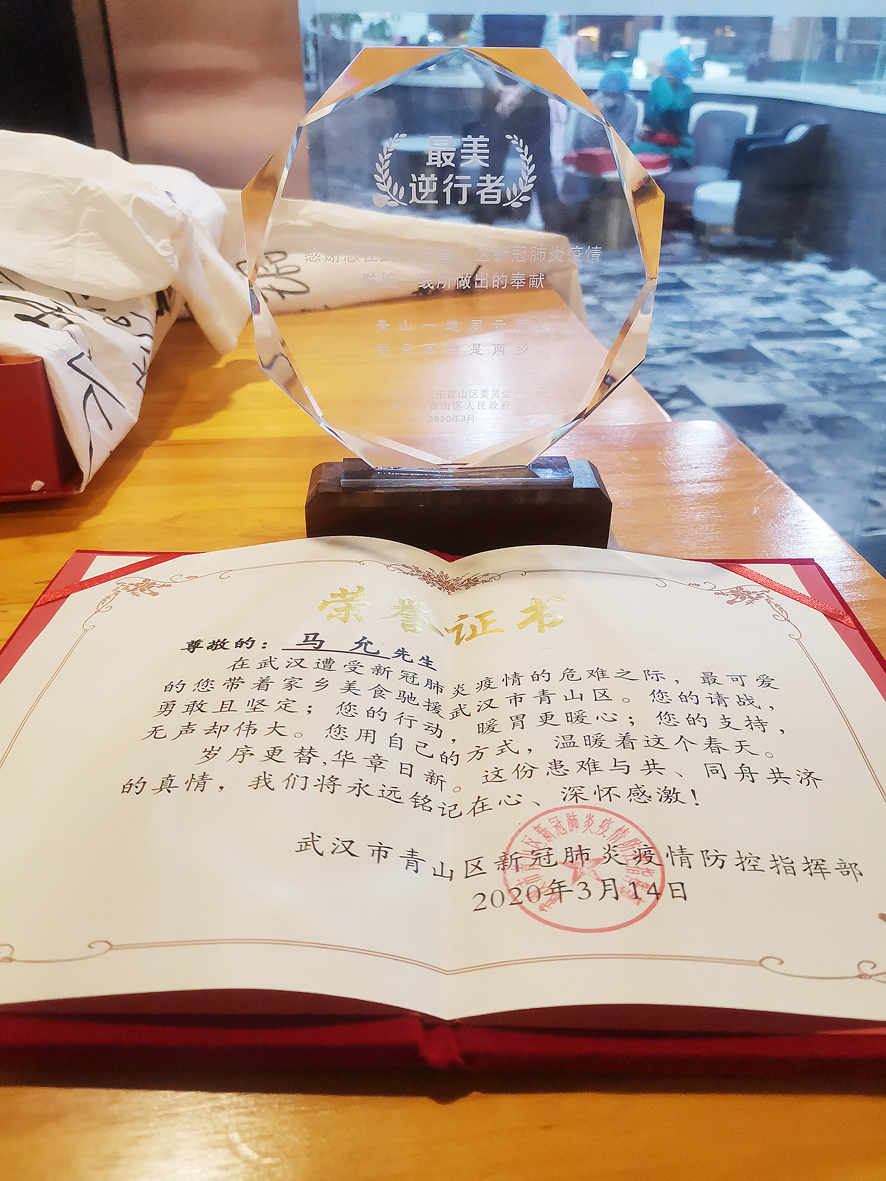 最美
逆行者
感谢您在 青山区新冠肺炎疫情
防控一线所做出的奉献
青山一道同云雨
明月何曾是两乡
市青山区委员会
青山区人民政府
2020年3月
荣誉证书
尊敬的：马允先生
在武汉遭受新冠肺炎疫情的危难之际，最可爱
的您带着家乡美食驰援武汉市青山区。您的请战，
勇敢且坚定；您的行动，暖胃更暖心；您的支持，
无声却伟大。您用自己的方式，温暖着这个春天。
岁序更替,华章日新。这份患难与共、同舟共济
的真情，我们将永远铭记在心、深怀感激！
武汉市青山区新冠肺炎疫情防控指挥部
2020年3月14日